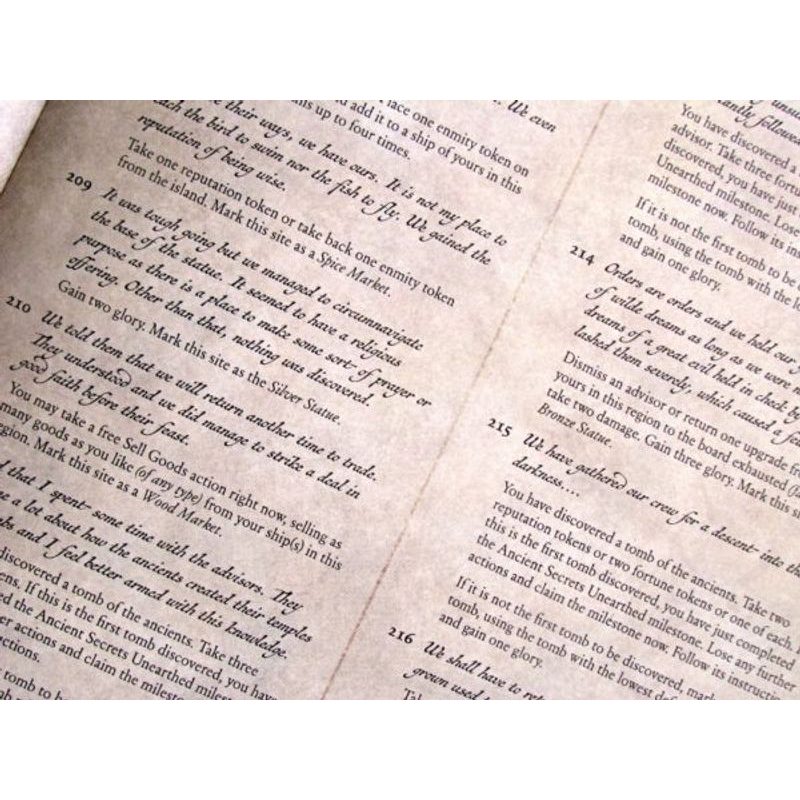 lace one enmity token on
and add it to a ship of yours in this
us up to four times.
We even
their ways, we have ours. It is not my place to
each the bird to swim nor the fish to fly. We gained the
reputation of being wise.
Take one reputation token or take back one enmity token
from the island. Mark this site as a Spice Market.
209 It was tough going but we managed to circumnavigate
the base of the statue. It seemed to have a religious
purpose as there is a place to make some sort of prayer or
offering. Other than that, nothing was discovered.
Gain two glory. Mark this site as the Silver Statue.
210 We told them that we will return another time to trade.
They understood and we did manage to strike a deal in
good faith before their feast.
You may take a free Sell Goods action right now, selling as
many goods as you like (of any type) from your ship(s) in this
egion. Mark this site as a Wood Market.
d that I spent some time with the advisors. They
e a lot about how the ancients created their temples
bs and I feel better armed with this knowledge.
discovered a tomb of the ancients. Take three
ens. If this is the first tomb discovered, you have
d the Ancient Secrets Unearthed milest
er actions and claim the milesto
ctions.
tomb to b
tantly followed
You have discovered a
advisor. Take three fortu
discovered, you have just
Unearthed milestone. Lose
milestone now. Follow its instr
If it is not the first tomb to be
tomb, using the tomb with the lo
and gain one glory.
214 Orders are orders and we held our
of wilde dreams as long as we were
dreams of a great evil held in check by
lashed them severely, which caused a
Dismiss an advisor or return one upgrade fr
yours in this region to the board exhausted
take two damage. Gain three glory. Mark this si
Bronze Statue.
215 We have gathered our crew for a descent into the
darkness....
You have discovered a tomb of the ancients. Take two
reputation tokens or two fortune tokens or one of each.
this is the first tomb discovered, you have just completed
the Ancient Secrets Unearthed milestone. Lose any further
actions and claim the milestone now. Follow its instructio
If it is not the first tomb to be discovered, mark
tomb, using the tomb with the lowest de
and gain one glory.
216 We shall have to ret
grown used t
Tak